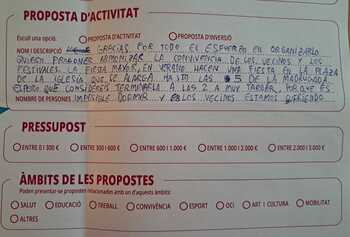 PROPOSTA D'ACTIVITAT
Escull una opció. PROPOSTA D'ACTIVITAT PROPOSTA D'INVERSIÓ
NOM I DESCRIPCIÓ GRACIAS POR TODO EL ESFUERZO EN ORGANIZARLO
QUIERO PROPONER ARMONIZAR LA CONVIVENCIA DE LOS VECINOS Y LOS
FESTIVALES. LA FIESTA MAYOR, EN VERANO HACEN UNA FIESTA EN LA PLAZA
DE LA IGLESIA QUE SE ALARGA HASTA LAS 5 DE LA MADRUGADA.
ESPERO QUE CONSIDEREIS TERMINARLA A LAS 2 A MUY TARDAR, PORQUE ES
NOMBRE DE PERSONES IMPOSIBLE DORMIR Y LOS VECINOS ESTAMOS SUFRIENDO
PRESSUPOST
ENTRE 0 I 300 € ENTRE 300 I 600 € ENTRE 600 I 1.000 € ENTRE 1.000 I 2.000 € ENTRE 2.000 I 3.000 €
ÀMBITS DE LES PROPOSTES
Poden presentar-se propostes relacionades amb un d'aquests àmbits:
SALUT EDUCACIÓ TREBALL CONVIVÈNCIA ESPORT OCI ART I CULTURA MOBILITAT
ALTRES